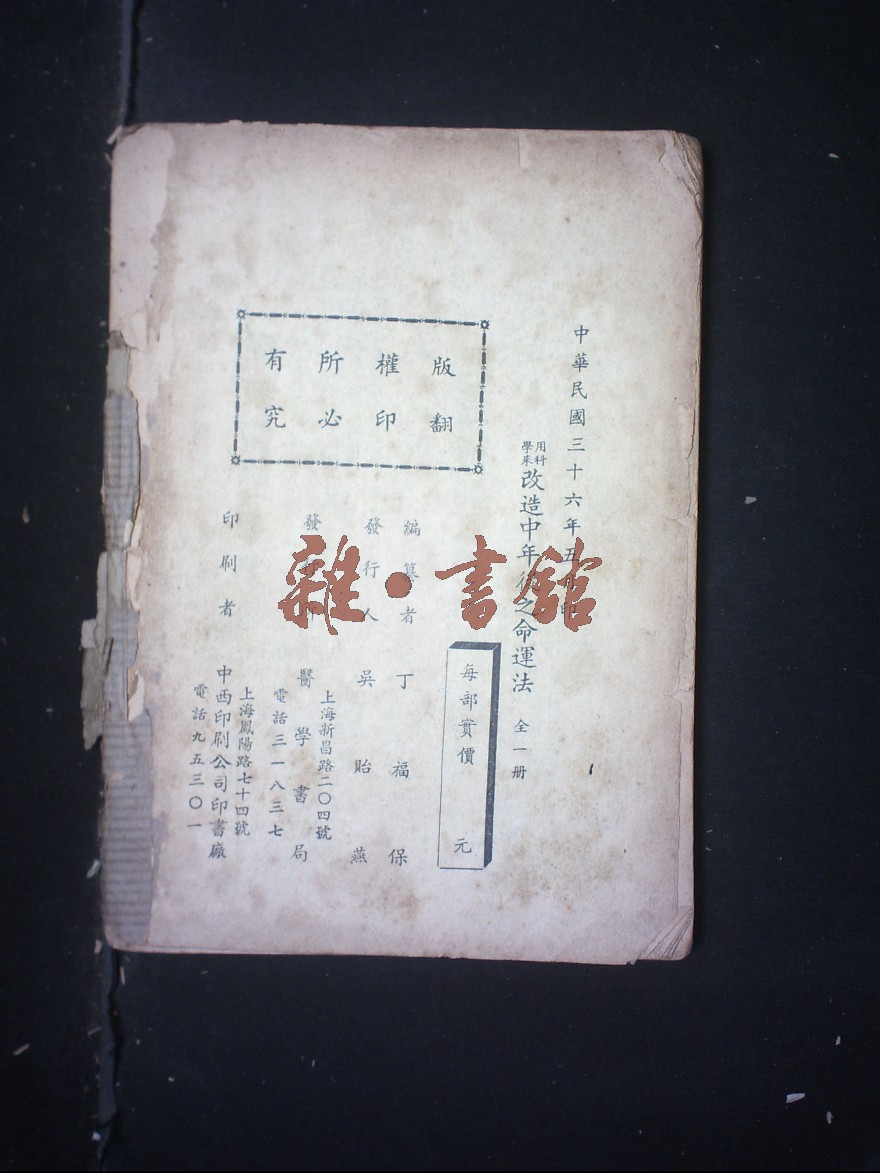 中華民國三十六年五月印
用科學來
改造中年後之命運法 全一册
每部實價 元
版權所有
翻印必究
編纂者 丁福保
發行人 吳貽燕
發行所 醫學書局
上海新昌路二〇四號
電話三一八三七
印刷者 中西印刷公司印書廠
上海鳳陽路七十四號
電話九五三〇一
雜·書館